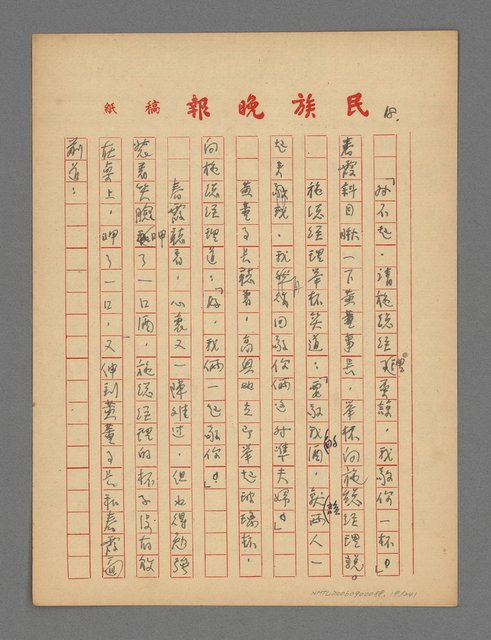 民族晚報 稿紙
18.
「對不起,請施總經理原諒,我敬你一杯。」
春霞斜目瞅一下黃董事長,舉杯向施總經理說。
施總經理舉杯笑道:「要敬我酒,就該你兩人一
起來敬我,我然後回敬你倆這對準夫婦。」
黃董事長聽著,高興地立即舉起玻璃杯,
向施總經理道:「好,我倆一起敬你。」
春霞聽著,心裏又一陣難過,但也得勉強
裝着笑臉呷了一口酒,施總經理的杯子沒有放
在桌上,呷了一口,又伸到黃董事長和春霞面
前道:
NMTL20060900088, 18/241